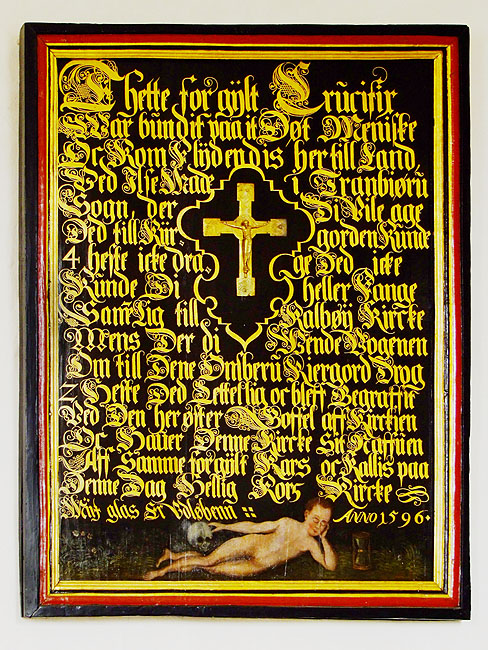 Thette for gylt Crucifix
War bundit paa it Døt Meniske
Oc Kom flydendis her till Land
Ved Ilse Made i Tranbiøru
Sogn, der Di Vile age
Ded till Kir- gorden Kunde
4 heste icke dra- ge Ded icke
Kunde Di heller Fange
Samlig till Kalbøÿ Kircke
Mens Der di Wende Vogenen
Om till Dene Omberu Kiergord Drog
2 Heste Ded Lettellig oc bleff Begraffu
Ved Den her øster Goffel aff Kirkjen
Oc Hauer Denne Kircke Sit Naffuen
Aff Samme forgylt Kars oc Kallis paa
Denne Dag Hellig Kors Kircke
glas Er Vdløbenn ::
ANNO 1596.